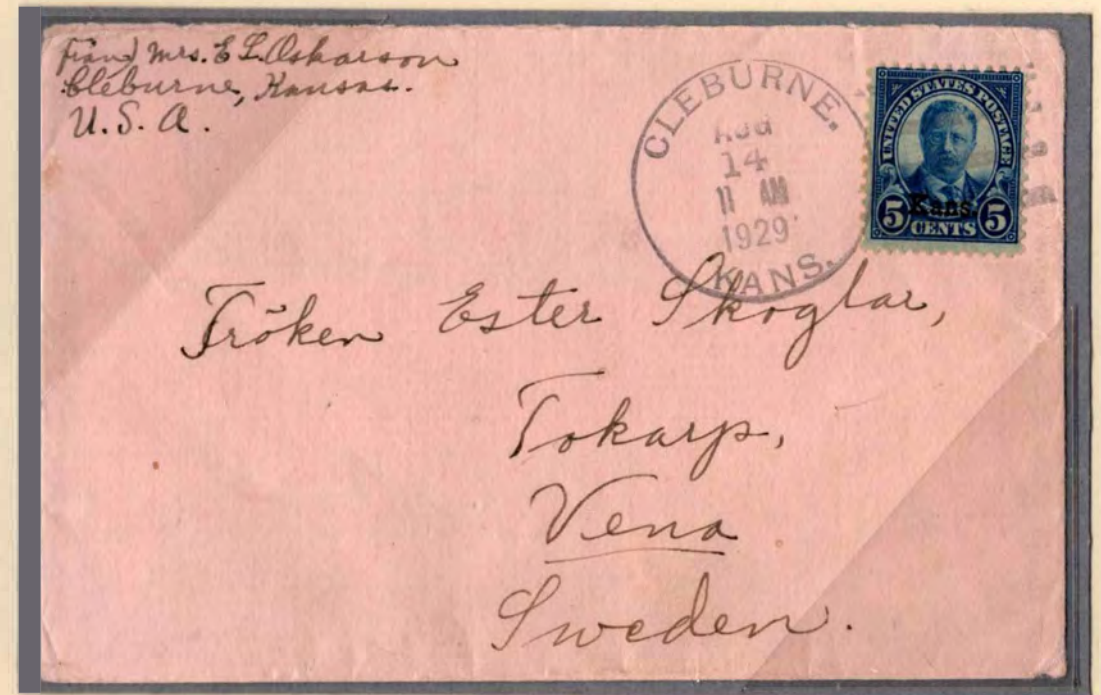 från Mrs. E L. Oskarson
Cleburne, Kansas.
U. S. A.
CLEBURNE.
AUG
14
11 AM
1929
KANS.
UNITED STATES POSTAGE
Kans.
5 CENTS 5
Fröken Ester Skoglar,
Tokarp,
Vena
Sweden.